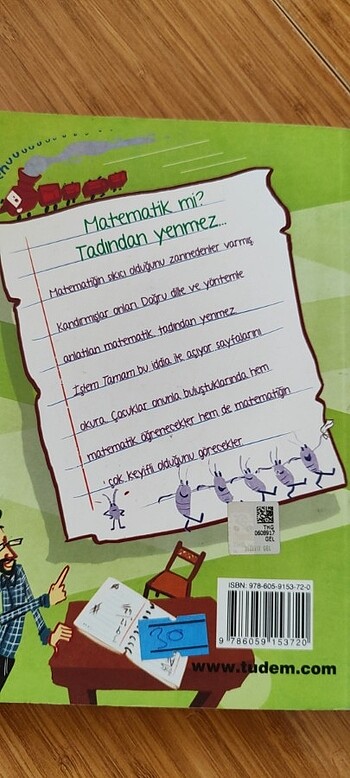 Matematik mi?
Tadından yenmez...
Matematiğin sıkıcı olduğunu zannedenler varmış.
Kandırmışlar onları. Doğru dille ve yöntemle
anlatılan matematik, tadından yenmez.
İşlem Tamam, bu iddia ile açıyor sayfalarını
okura. Çocuklar onunla buluştuklarında hem
matematik öğrenecekler hem de matematiğin
çok keyifli olduğunu görecekler.
THG
0608917
GEL
ISBN: 978-605-9153-72-0
9 786059 153720
30
www.tudem.com